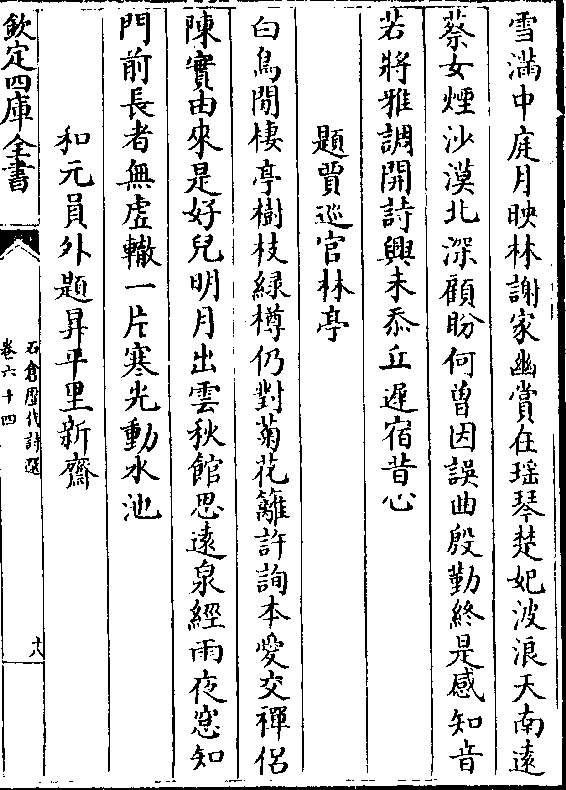 雪滿中庭月映林謝家幽賞在瑶琴楚妃波浪天南遠
蔡女煙沙漠北深顧盻何曽因誤曲殷勤終是感知音
若將雅調開詩興未忝丘遲宿昔心
題賈巡官林亭
白鳥閒棲亭樹枝緑樽仍對菊花籬許詢本愛交禪侣
陳寔由來是好兒明月出雲秋館思逺泉經雨夜窓知
門前長者無虚轍一片寒光動水池
和元員外題昇平里新齋
欽定四庫全書
石倉歴代詩選
卷六十四
十八